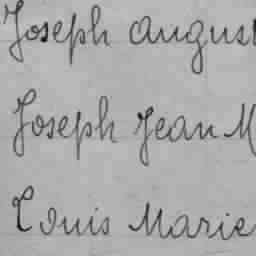 Joseph Augus
Joseph Jean M
Louis Marie